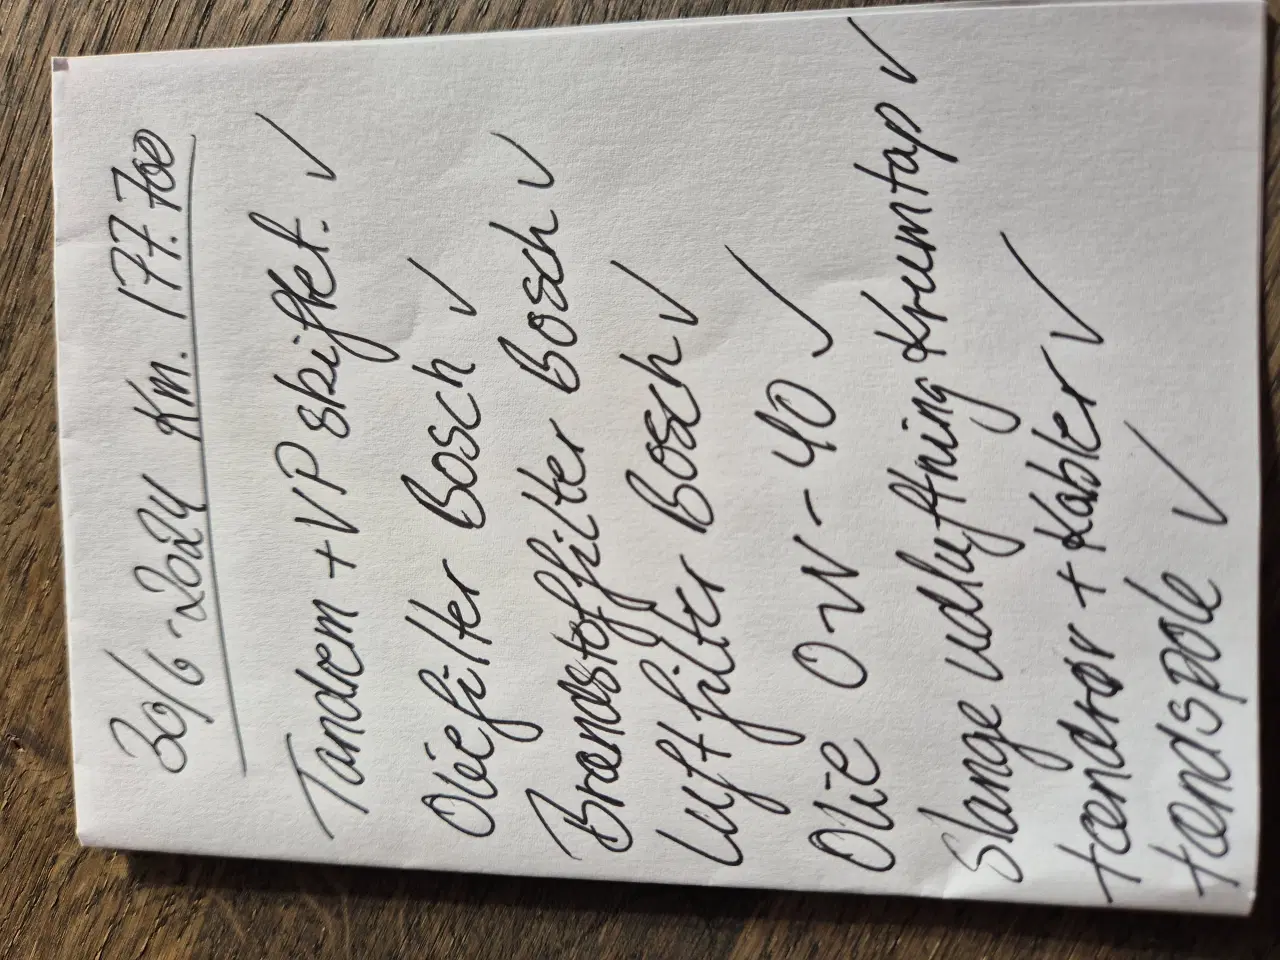 30/6-2024 Km. 177.700
Tandrem + VP skiftet. ✓
Oliefilter Bosch ✓
Brændstoffilter Bosch ✓
Luftfilter Bosch ✓
Olie 0W-40 ✓
Slange udluftning Krumtap ✓
tændrør + Kabler ✓
tændspole ✓